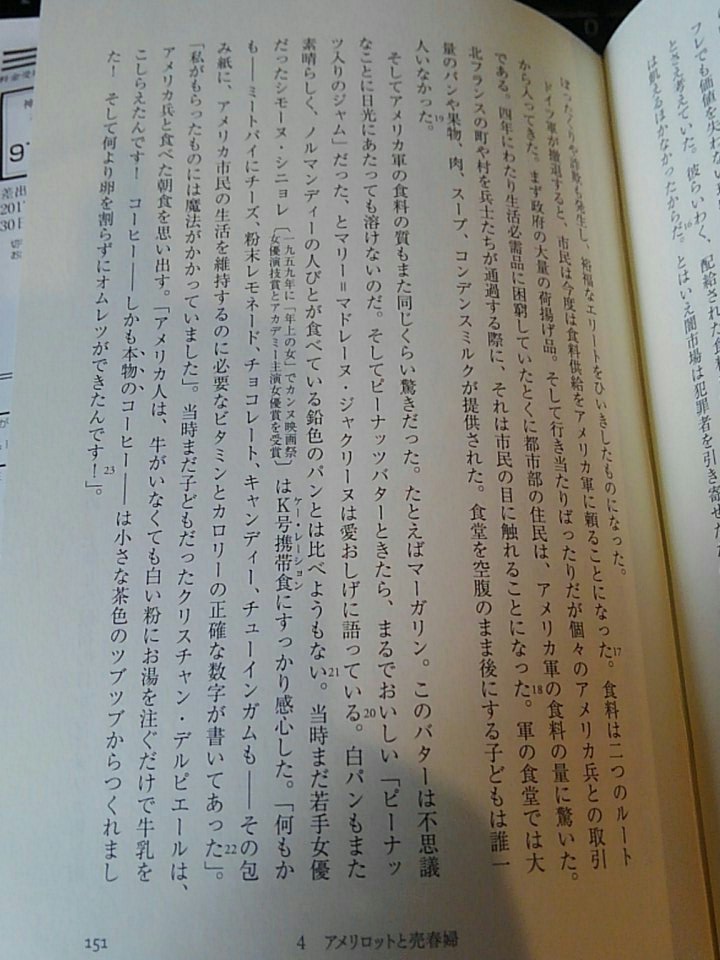 フレでも価値を失わない
とさえ考えていた。彼らいわく、配給された食料
は飢えるほかなかったからだ。16とはいえ闇市場は犯罪者を引き寄せ
ぼったくりや詐欺も発生し、裕福なエリートをひいきしたものになった。
ドイツ軍が撤退すると、市民は今度は食料供給をアメリカ軍に頼ることになった。17食料は二つのルート
から入ってきた。まず政府の大量の荷揚げ品。そして行き当たりばったりだが個々のアメリカ兵との取引
である。四年にわたり生活必需品に困窮していたとくに都市部の住民は、アメリカ軍の食料の量に驚いた。
北フランスの町や村を兵士たちが通過する際に、それは市民の目に触れることになった。18軍の食堂では大
量のパンや果物、肉、スープ、コンデンスミルクが提供された。食堂を空腹のまま後にする子どもは誰一
人いなかった。19
そしてアメリカ軍の食料の質もまた同じくらい驚きだった。たとえばマーガリン。このバターは不思議
なことに日光にあたっても溶けないのだ。そしてピーナッツバターときたら、まるでおいしい「ピーナッ
ツ入りのジャム」だった、とマリー＝マドレーヌ・ジャクリーヌは愛おしげに語っている。20白パンもまた
素晴らしく、ノルマンディーの人びとが食べている鉛色のパンとは比べようもない。21当時まだ若手女優
だったシモーヌ・シニョレ〔一九五九年に「年上の女」でカンヌ映画祭女優演技賞とアカデミー主演女優賞を受賞〕はK号携帯食ケー・レーションにすっかり感心した。「何もか
も――ミートパイにチーズ、粉末レモネード、チョコレート、キャンディー、チューインガムも――その包
み紙に、アメリカ市民の生活を維持するのに必要なビタミンとカロリーの正確な数字が書いてあった」。22
「私がもらったものには魔法がかかっていました」。当時まだ子どもだったクリスチャン・デルピエールは、
アメリカ兵と食べた朝食を思い出す。「アメリカ人は、牛がいなくても白い粉にお湯を注ぐだけで牛乳を
こしらえたんです！　コーヒー――しかも本物のコーヒー――は小さな茶色のツブツブからつくれまし
た！　そして何より卵を割らずにオムレツができたんです！」。23
151
4　アメリロットと売春婦
料金受
神
9
差出
201
30日
切